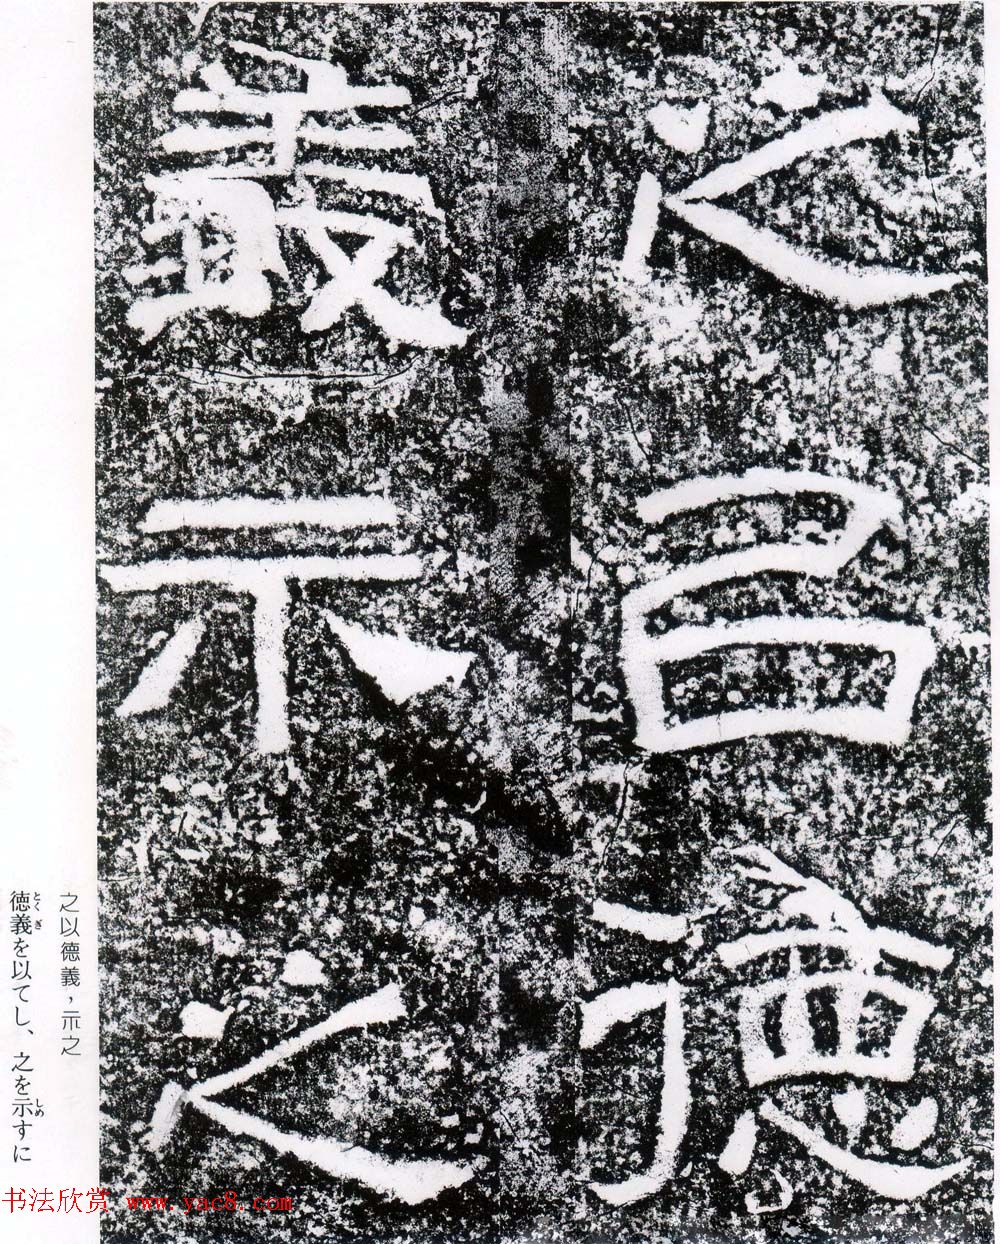 之㠯德
義示之
之以德義，示之
徳義を以てし、之を示すに
とく ぎ しめ
书法欣赏 www.yac8.com